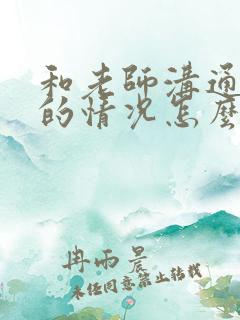 和老師溝通
的情況怎麼
冉雨晨
未经同意禁止转载